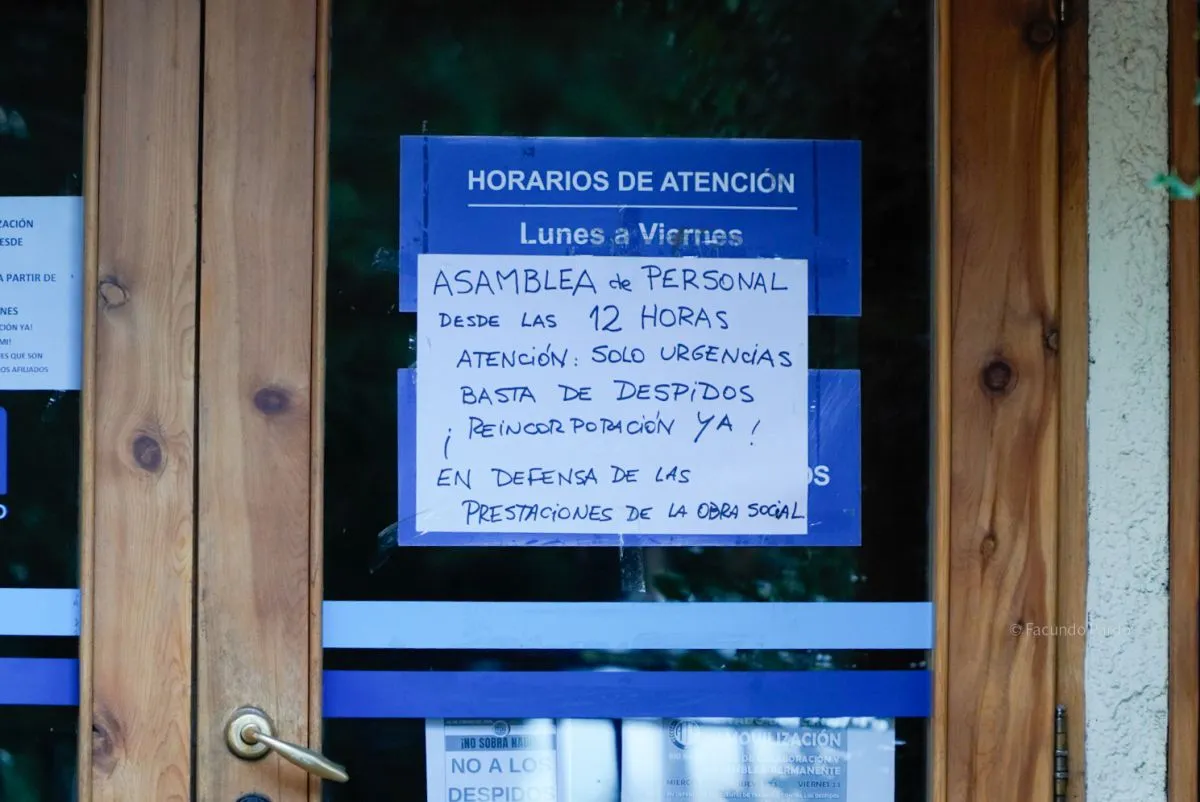 ZACIÓN
ESDE
A PARTIR DE
NES
CIÓN YA!
MI!
ES QUE SON
OS AFILIADOS
HORARIOS DE ATENCIÓN
Lunes a Viernes
ASAMBLEA de PERSONAL
DESDE LAS 12 HORAS
ATENCIÓN: SOLO URGENCIAS
BASTA DE DESPIDOS
¡REINCORPORACIÓN YA!
EN DEFENSA DE LAS
PRESTACIONES DE LA OBRA SOCIAL
OS
© Facundo Pardo
¡NO SOBRA NADIE
NO A LOS
DESPIDOS
MOVILIZACIÓN
DE COLABORACIÓN Y
ASAMBLEA PERMANENTE
VIERNES